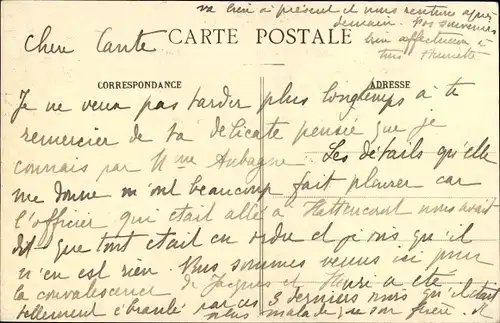 va bien à présent et nous rentrons après
demain. Vos souvenirs
bien affectueux à
tous Henriette
Chère Tante
CARTE POSTALE
CORRESPONDANCE
ADRESSE
Je ne veux pas tarder plus longtemps à te
remercier de ta délicate pensée que je
connais par Mme Aubagne. Les détails qu'elle
me donne m'ont beaucoup fait plaisir car
l'officier qui était allé à Hattencourt nous avait
dit que tout était en ordre et je vois qu'il
n'en est rien. Nous sommes venus ici pour
la convalescence de Jacques et Henri a été
tellement ébranlé par ces 3 derniers mois qu'il était
plus malade que son frère. Il